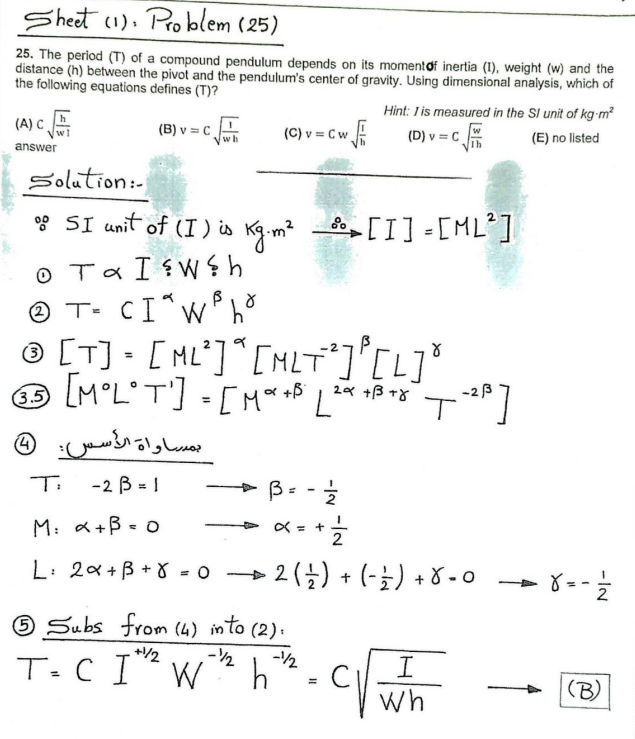 Sheet (1): Problem (25)
25. The period (T) of a compound pendulum depends on its moment of inertia (I), weight (w) and the
distance (h) between the pivot and the pendulum's center of gravity. Using dimensional analysis, which of
the following equations defines (T)?
Hint: I is measured in the SI unit of kg·m²
(A) C √(h/(w I)) (B) v = C √(I/(w h)) (C) v = C w √(I/h) (D) v = C √(w/(I h)) (E) no listed
answer
Solution:-
∵ SI unit of (I) is Kg.m² ∴→ [I] = [ML²]
① T α I & W & h
② T = C I^α W^β h^γ
③ [T] = [ML²]^α [MLT⁻²]^β [L]^γ
③.⑤ [M⁰L⁰T¹] = [M^(α+β) L^(2α+β+γ) T^(-2β)]
④ بمساواة الأسس:
T: -2β = 1 → β = -1/2
M: α+β = 0 → α = +1/2
L: 2α+β+γ = 0 → 2(1/2) + (-1/2) + γ = 0 → γ = -1/2
⑤ Subs from (4) into (2):
T = C I^(+1/2) W^(-1/2) h^(-1/2) = C √(I/(Wh)) → (B)